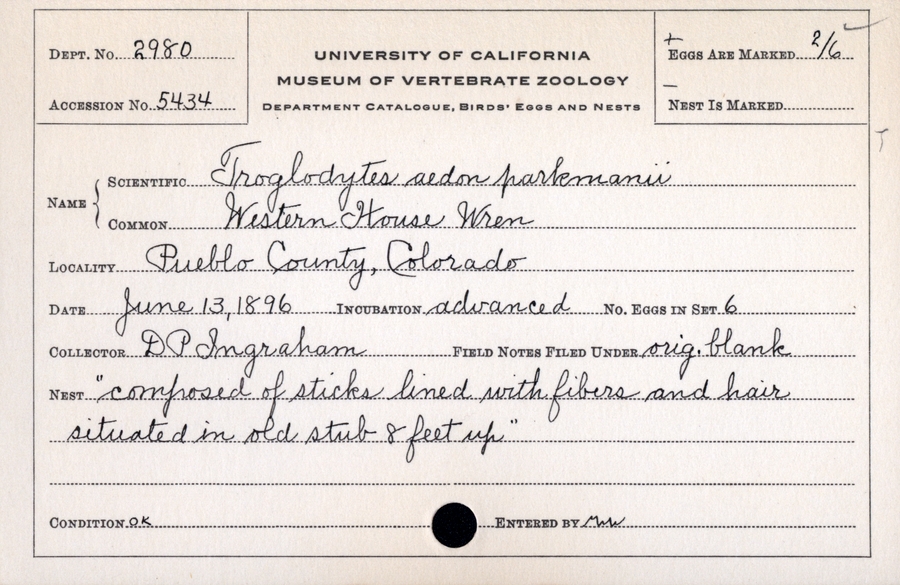 DEPT. No. 2980
ACCESSION No. 5434
UNIVERSITY OF CALIFORNIA
MUSEUM OF VERTEBRATE ZOOLOGY
DEPARTMENT CATALOGUE, BIRDS' EGGS AND NESTS
+
EGGS ARE MARKED 2/6
—
NEST IS MARKED
NAME { SCIENTIFIC Troglodytes aedon parkmanii
COMMON Western House Wren
LOCALITY Pueblo County, Colorado
DATE June 13, 1896 INCUBATION advanced NO. EGGS IN SET 6
COLLECTOR D P Ingraham FIELD NOTES FILED UNDER orig. blank
NEST "composed of sticks lined with fibers and hair
situated in old stub 8 feet up"
CONDITION OK ENTERED BY